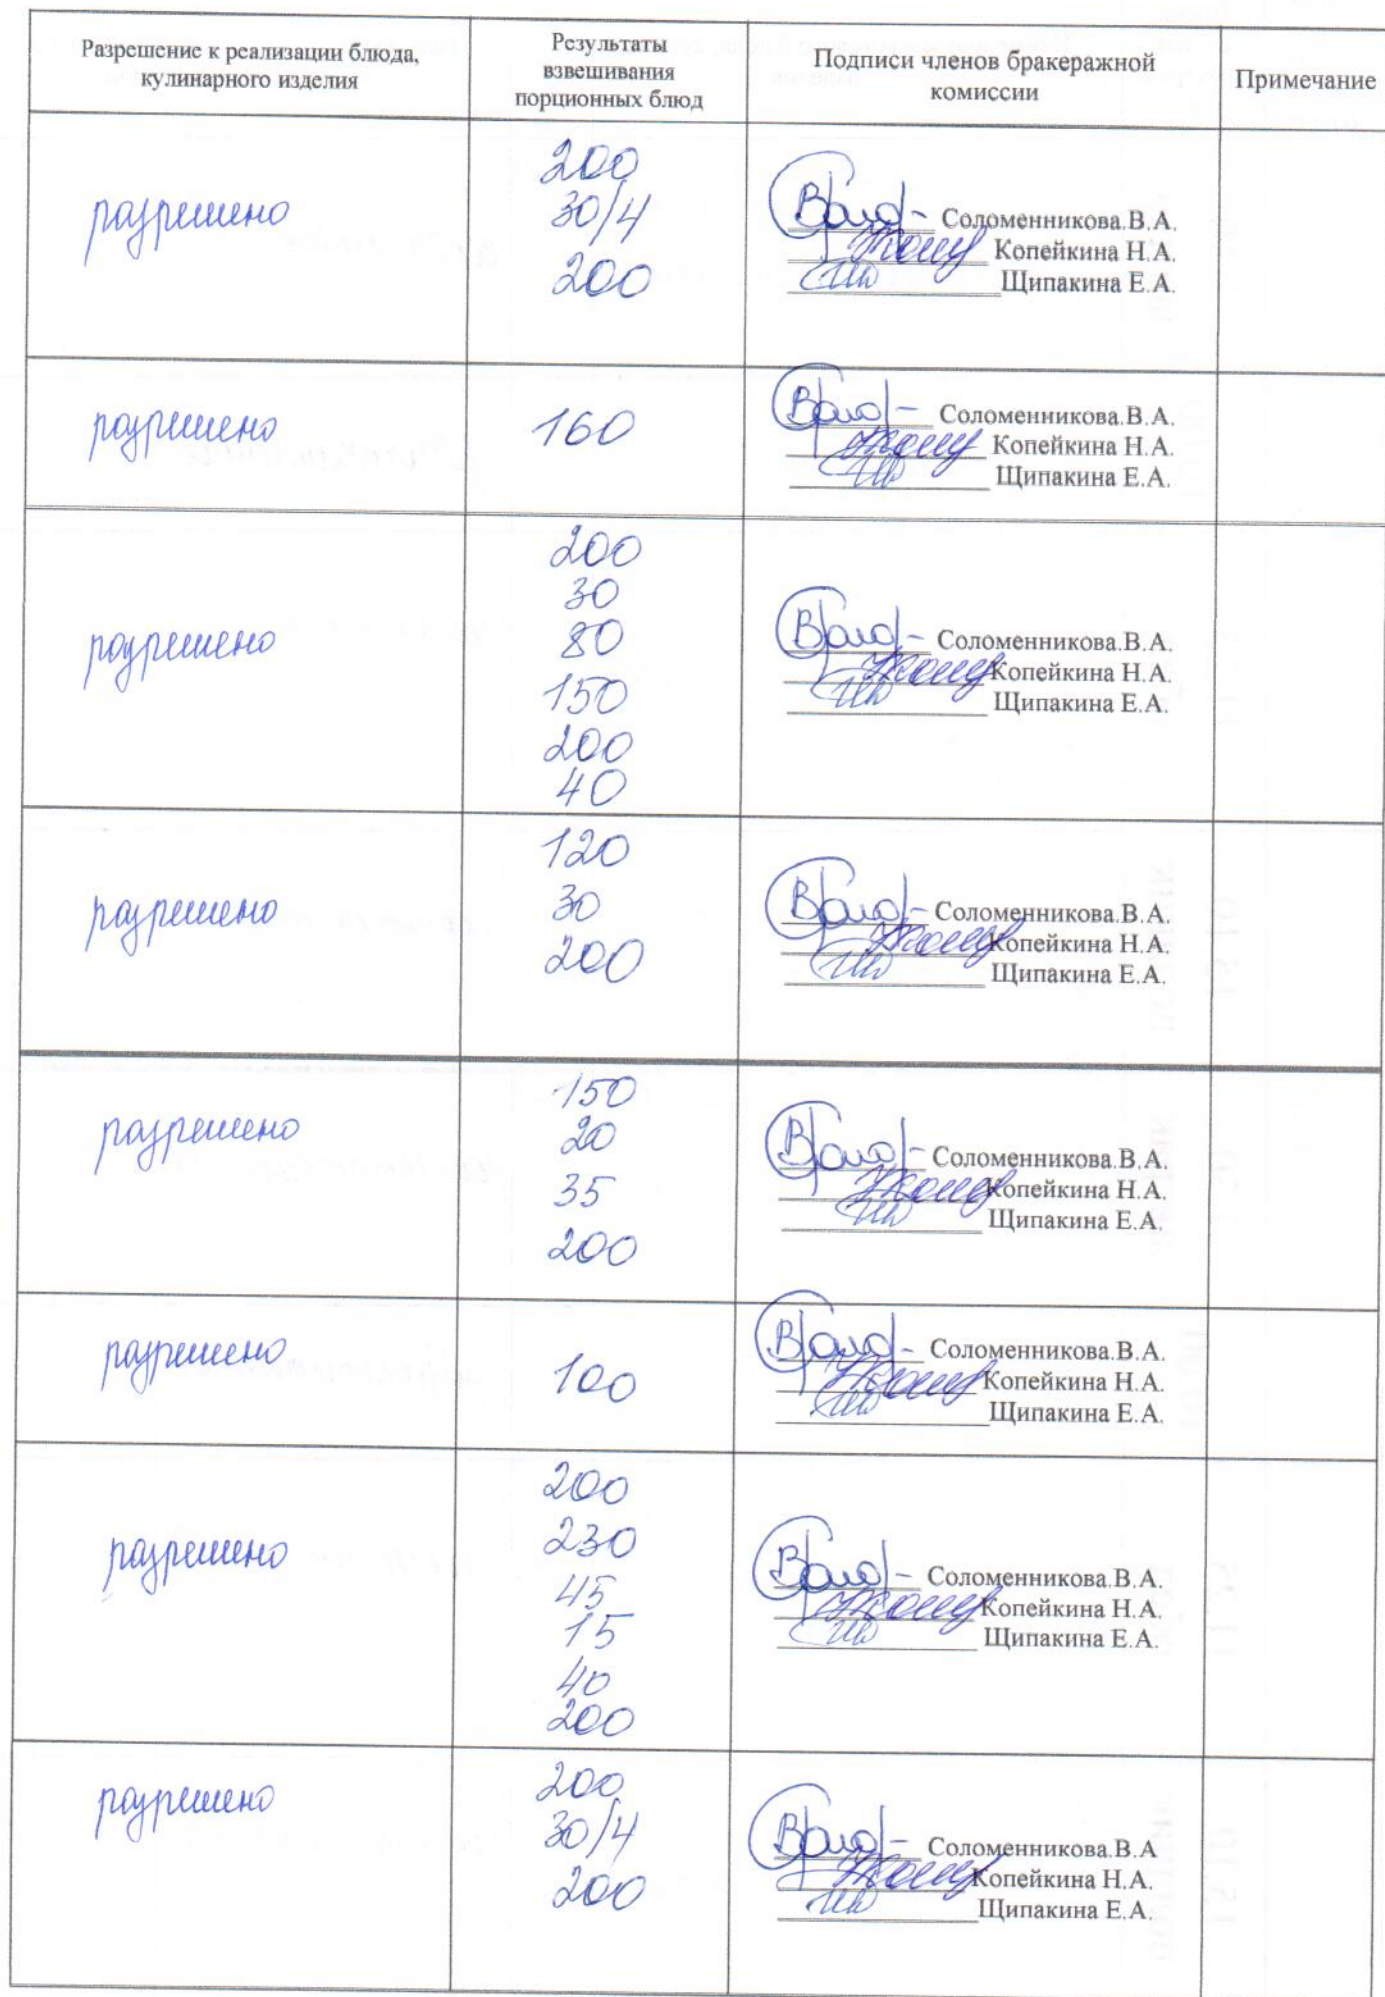 Разрешение к реализации блюда,
кулинарного изделия
Результаты
взвешивания
порционных блюд
Подписи членов бракеражной
комиссии
Примечание
разрешено
200
30/4
200
Соломенникова.В.А.
Копейкина Н.А.
Щипакина Е.А.
разрешено
160
Соломенникова.В.А.
Копейкина Н.А.
Щипакина Е.А.
разрешено
200
30
80
150
200
40
Соломенникова.В.А.
Копейкина Н.А.
Щипакина Е.А.
разрешено
120
30
200
Соломенникова.В.А.
Копейкина Н.А.
Щипакина Е.А.
разрешено
150
20
35
200
Соломенникова.В.А.
Копейкина Н.А.
Щипакина Е.А.
разрешено
100
Соломенникова.В.А.
Копейкина Н.А.
Щипакина Е.А.
разрешено
200
230
45
15
40
200
Соломенникова.В.А.
Копейкина Н.А.
Щипакина Е.А.
разрешено
200
30/4
200
Соломенникова.В.А
Копейкина Н.А.
Щипакина Е.А.